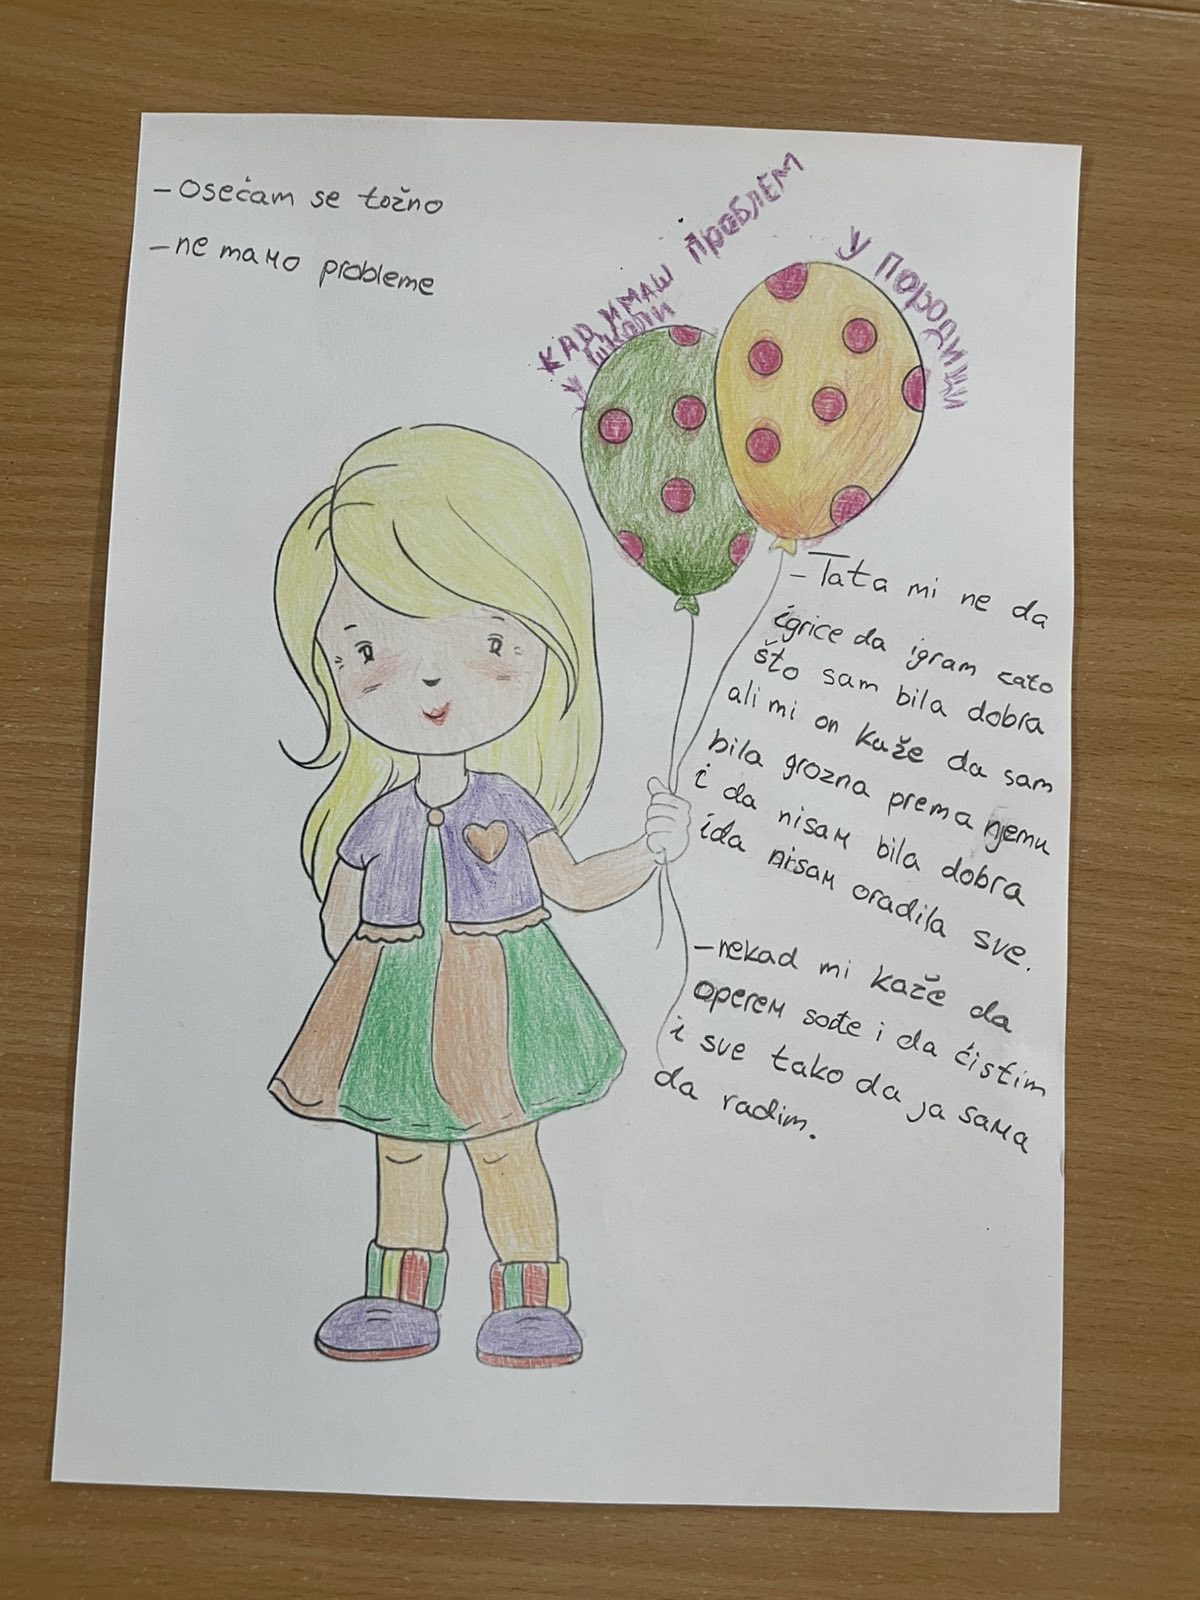 - Osećam se tožno
- ne maмo probleme
КАД ИМАШ ПРОБЛЕМ
У ШКОЛИ
У ПОРОДИЦИ
- Tata mi ne da
igrice da igram zato
što sam bila dobra
ali mi on kaže da sam
bila grozna prema njemu
i da nisam bila dobra
ida nisam oradila sve.
- nekad mi kaže da
operem sođe i da ćistim
i sve tako da ja sama
da radim.